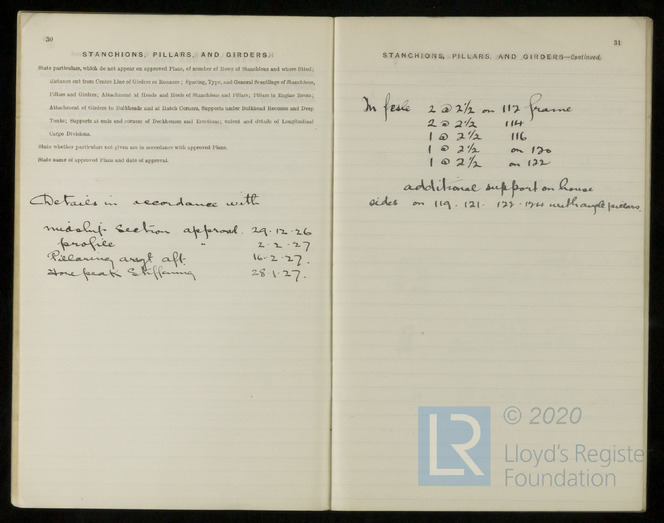 30
STANCHIONS, PILLARS, AND GIRDERS.
State particulars, which do not appear on approved Plans, of number of Rows of Stanchions and where fitted;
distance out from Centre Line of Girders or Runners; Spacing, Type, and General Scantlings of Stanchions,
Pillars and Girders; Attachment of Heads and Heels of Stanchions and Pillars; Pillars in Engine Room;
Attachment of Girders to Bulkheads and at Hatch Corners, Supports under Bulkhead Recesses and Deep
Tanks; Supports at ends and corners of Deckhouses and Erections; extent and details of Longitudinal
Cargo Divisions.
State whether particulars not given are in accordance with approved Plans.
State name of approved Plans and date of approval.
Details in accordance with
midship section approved. 29.12.26
profile " 2.2.27
Pillaring arrgt aft. 16.2.27.
Fore peak Stiffening 28.1.27.
31
STANCHIONS, PILLARS, AND GIRDERS—Continued.
In 2 @ 2½ on 112 frame
2 @ 2½ 114
1 @ 2½ 116
1 @ 2½ on 120
1 @ 2½ on 122
additional support on house
sides on 119. 121. 122. 124 with angle pillars.
© 2020
LR
Lloyd's Register
Foundation